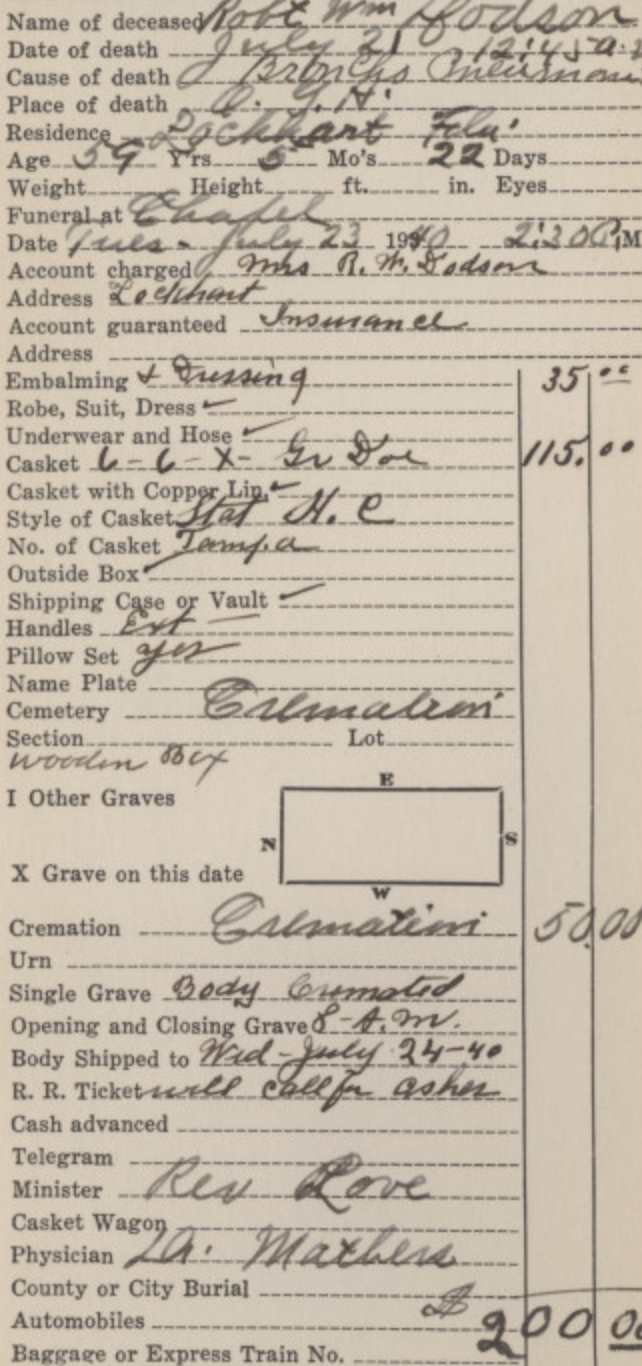 Name of deceased Robt Wm Dodson
Date of death July 21 12:45 a.
Cause of death Broncho Pneumoni
Place of death O. G. H.
Residence Lockhart Fla.
Age 59 Y'rs 5 Mo's 22 Days
Weight Height ft. in. Eyes
Funeral at Chapel
Date Tues - July 23 1940 2:30 P.M
Account charged Mrs R. W. Dodson
Address Lockhart
Account guaranteed Insurance
Address
Embalming & Dressing 35 00
Robe, Suit, Dress
Underwear and Hose
Casket 6-6-X- Gr Doe 115.00
Casket with Copper Lin.
Style of Casket Stat H. C
No. of Casket Tampa
Outside Box
Shipping Case or Vault
Handles Ext —
Pillow Set yes
Name Plate
Cemetery Cremation
Section Lot
wooden Box
E
I Other Graves
N S
X Grave on this date
W
Cremation Cremation 50.00
Urn
Single Grave Body Cremated
Opening and Closing Grave 8-A.M.
Body Shipped to Wed-July 24-40
R. R. Ticket will call for ashes
Cash advanced
Telegram
Minister Rev Love
Casket Wagon
Physician Dr. Mathers
County or City Burial
Automobiles $ 200 00
Baggage or Express Train No.